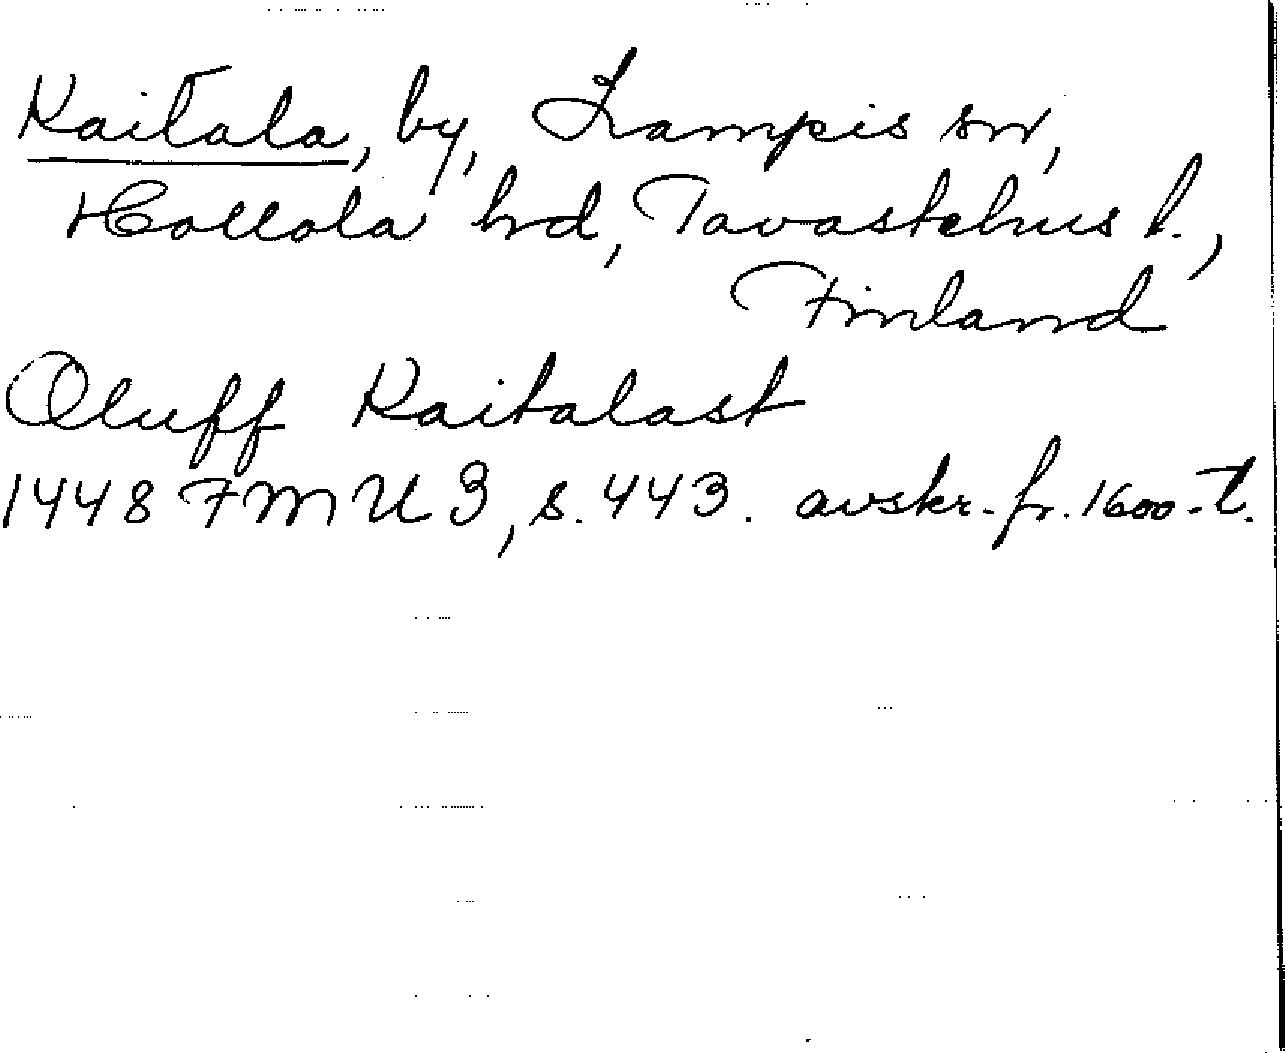 Kaitala, by, Lampis sn,
Hollola hrd, Tavastehus l.,
Finland
Oluff Kaitalast
1448 FMU 3, s. 443. avskr. fr. 1600-t.